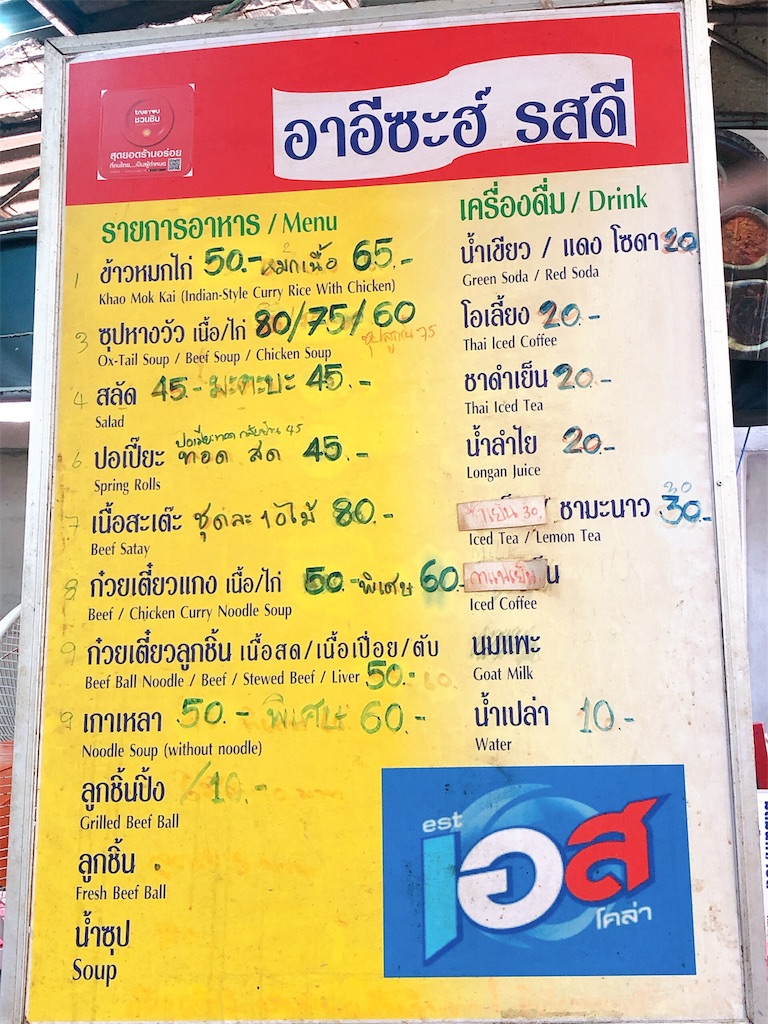 อาอีซะฮ์ รสดี
ชวนชิม
สุดยอดร้านอร่อย
รายการอาหาร / Menu
1 ข้าวหมกไก่ 50.- หมกเนื้อ 65.-
Khao Mok Kai (Indian-Style Curry Rice With Chicken)
3 ซุปหางวัว เนื้อ/ไก่ 80/75/60
Ox-Tail Soup / Beef Soup / Chicken Soup
4 สลัด 45.- มะตะบะ 45.-
Salad
6 ปอเปี๊ยะ ทอด สด 45.-
Spring Rolls
7 เนื้อสะเต๊ะ ชุดละ 10 ไม้ 80.-
Beef Satay
8 ก๋วยเตี๋ยวแกง เนื้อ/ไก่ 50.- พิเศษ 60.-
Beef / Chicken Curry Noodle Soup
9 ก๋วยเตี๋ยวลูกชิ้น เนื้อสด/เนื้อเปื่อย/ตับ
Beef Ball Noodle / Beef / Stewed Beef / Liver 50.-
9 เกาเหลา 50.- พิเศษ 60.-
Noodle Soup (without noodle)
ลูกชิ้นปิ้ง /10.-
Grilled Beef Ball
ลูกชิ้น
Fresh Beef Ball
น้ำซุป
Soup
เครื่องดื่ม / Drink
น้ำเขียว / แดง โซดา 20
Green Soda / Red Soda
โอเลี้ยง 20.-
Thai Iced Coffee
ชาดำเย็น 20.-
Thai Iced Tea
น้ำลำไย 20.-
Longan Juice
ชาเย็น 30 ชามะนาว 30.-
Iced Tea / Lemon Tea
กาแฟเย็น
Iced Coffee
นมแพะ
Goat Milk
น้ำเปล่า 10.-
Water
est
เอส
โคล่า